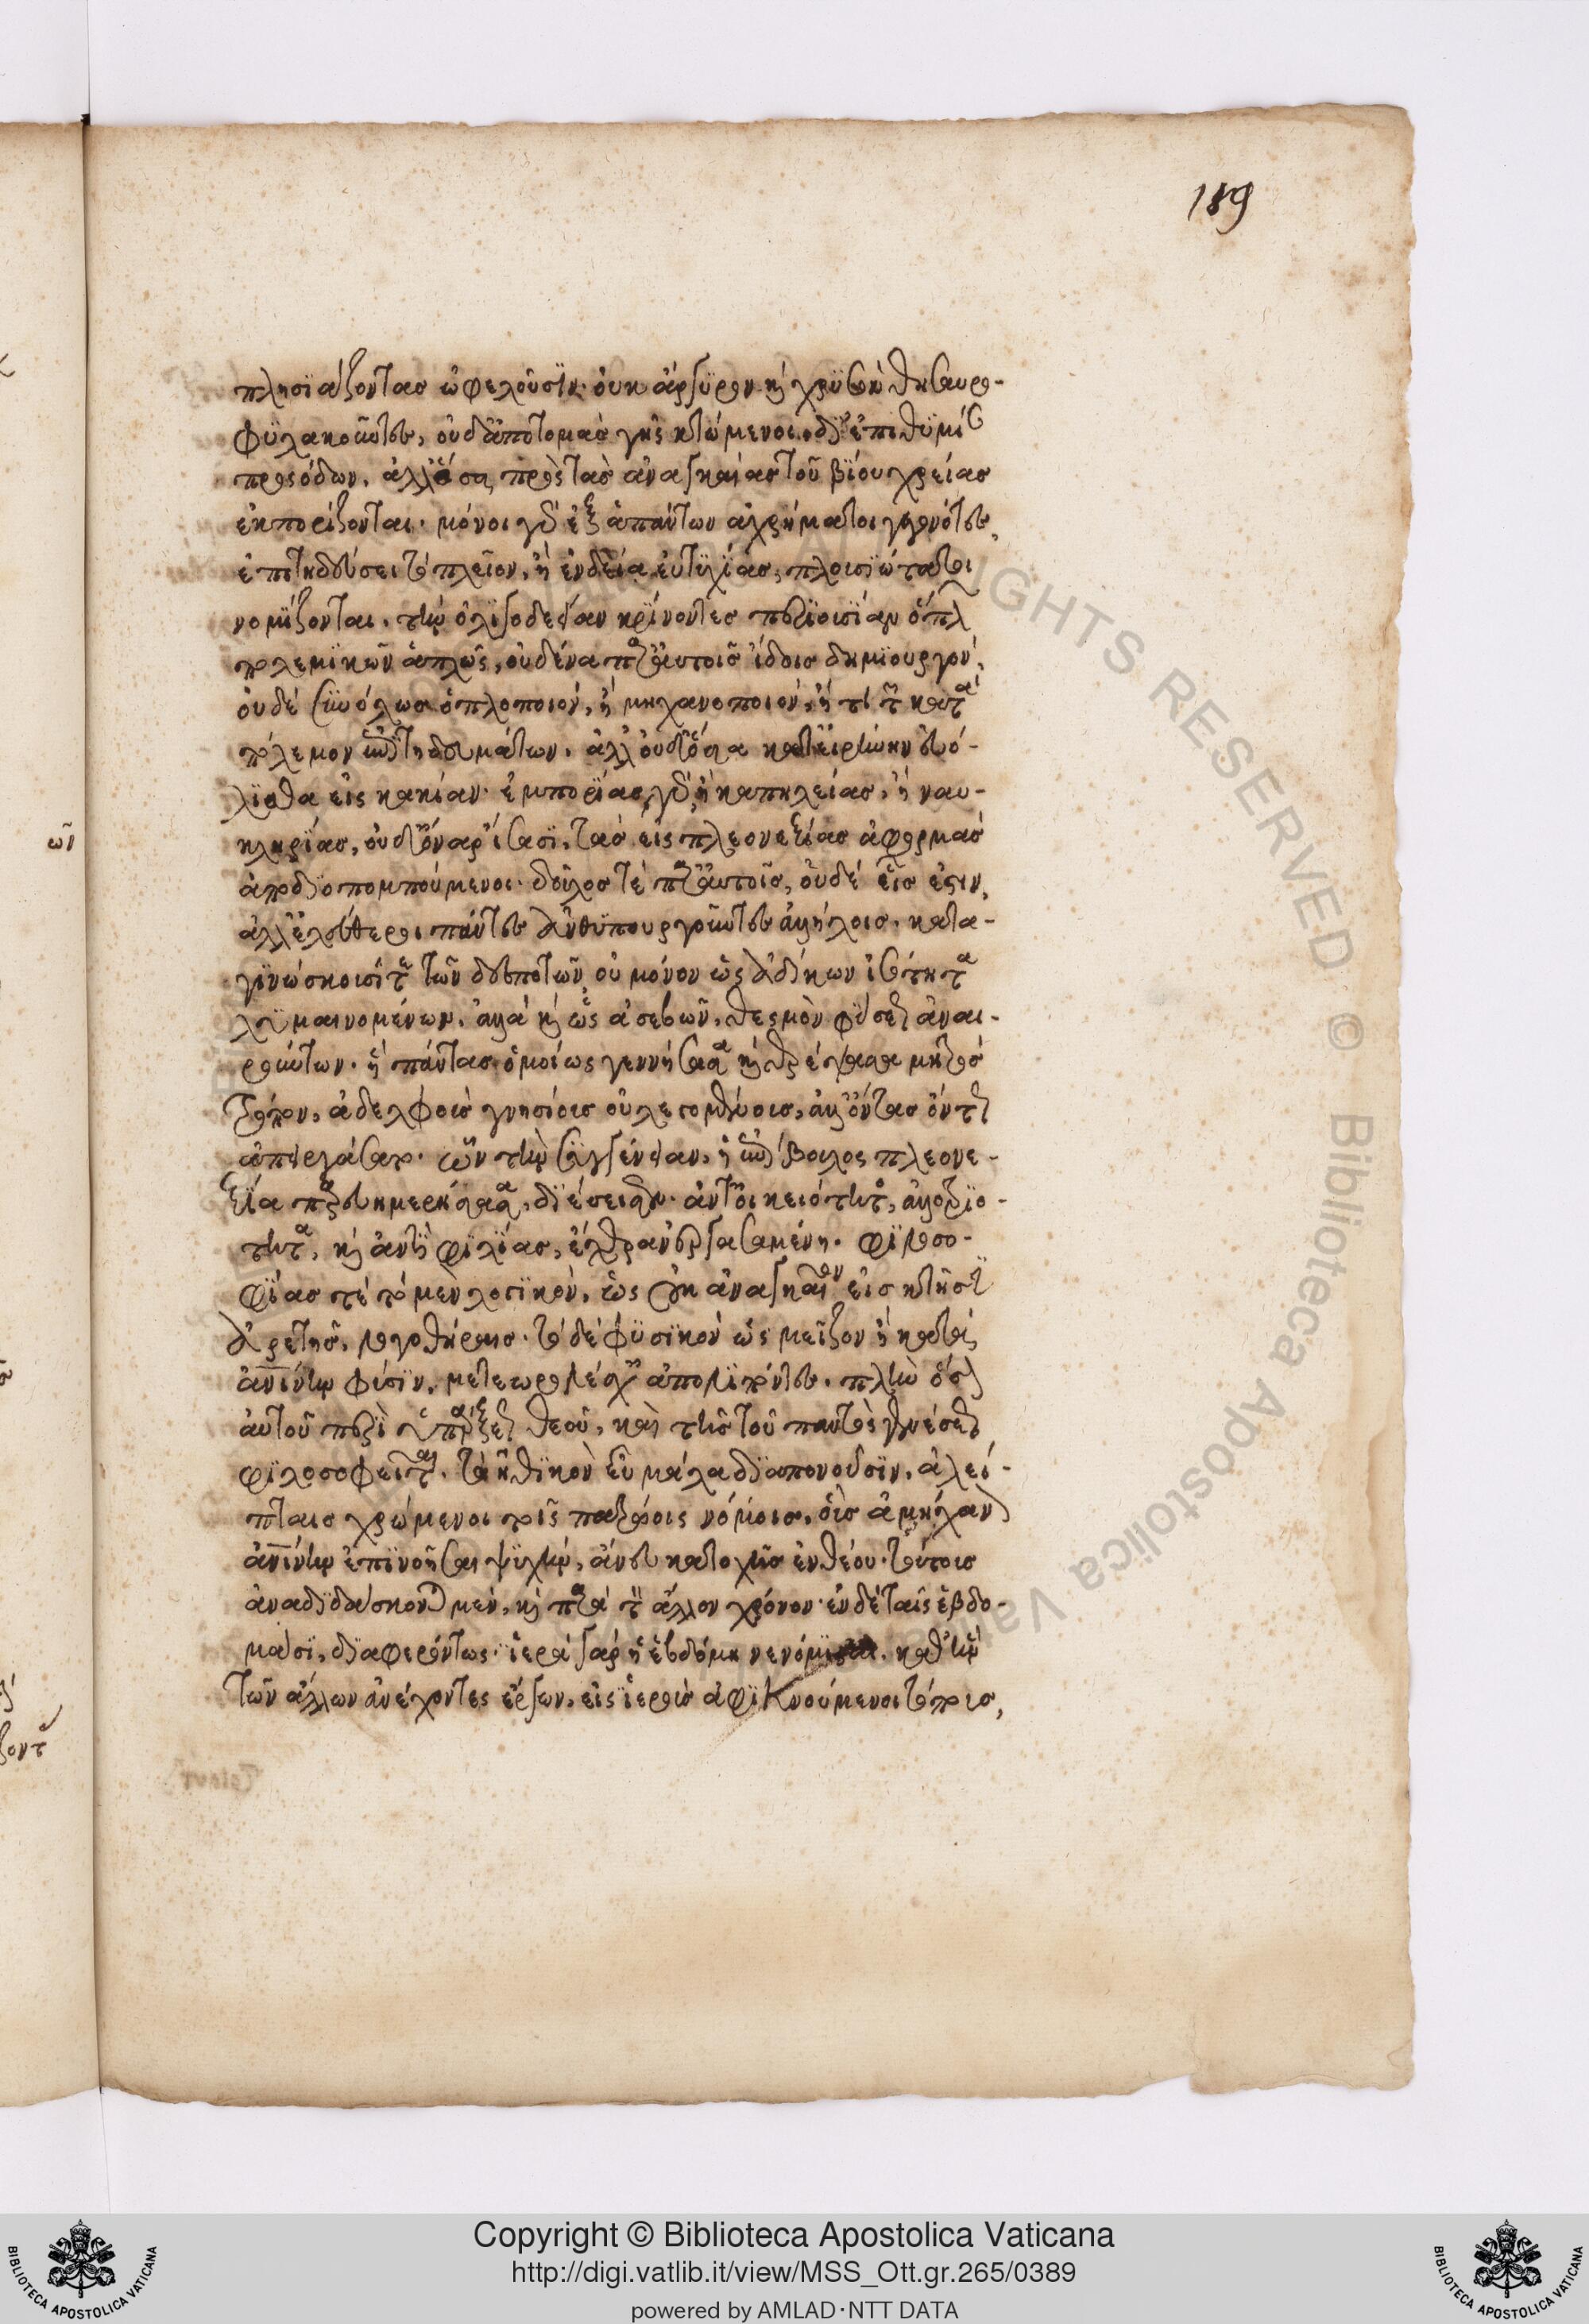 πλησϊάζοντας ὠφελοῦσϊν· οὐκ ἄργϋρον κὶ χρϋσὸν θησαυρο-
φϋλακοῦντες, οὐδ' ἀποτομὰς γῆς κτώμενοι. δϊ' ἐπιθϋμίαν
προσόδων. ἀλλ' ὅσα πρὸς τὰς ἀναγκαίας τοῦ βϊου χρείας
ἐκπορίζονται. μόνοι γὰρ ἐξ ἁπάντων ἀχρήματοι γεγονότες,
ἐπιτηδεύσει τὸ πλεῖον, ἢ ἐνδεία εὐτϋχίας, πλουσϊώτατοι
νομίζονται. τὴν ὀλϊγοδεΐαν κρϊνοντες περϊουσϊαν ὅπλ
πολεμϊκῶν ἁπλῶς, οὐδένα παρ' αὐτοῖς ἴδοις δημϊουργόν,
οὐδὲ συνόλως ὁπλοποιόν, ἢ μηχανοποιόν, ἤ τι τ κατὰ
πόλεμον ἐπϊτηδευμάτων. ἀλλ' οὐδ' ὅσα κατ' εἰρήνην εὐό-
λϊσθα εἰς κακίαν. ἐμπορϊας γὰρ ἢ καπηλείας, ἢ ναυ-
κληρϊας, οὐδ' ὄναρ ἴσασϊ. τὰς εἰς πλεονεξίας ἀφορμὰς
ἀποδϊοπομπούμενοι. δοῦλος τὲ παρ' αὐτοῖς, οὐδὲ εἷς ἐστιν,
ἀλλ' ἐλεύθεροι πάντες ἀνθϋπουργοῦντες ἀλλήλοις. κατα-
γϊνώσκουσί τε τῶν δεσποτῶν οὐ μόνον ὡς ἀδίκων ἰσότητα
λϋμαινομένων. ἀλλὰ κὶ ὡς ἀσεβῶν, θεσμὸν φϋσεως ἀναι-
ρούντων. ἣ πάντας ὁμοίως γεννήσασα κὶ θρέψασα μητρὸς
τρόπον, ἀδελφοὺς γνησίους οὐ λεγομένους, ἀλλ' ὄντας ὄντως
ἀπειργάσατο. ὧν τὴν σϋγγένειαν, ἡ ἐπίβουλος πλεονε-
ξία παρευημερήσασα, δϊέσεισεν. ἀντ' οἰκειότητος, ἀλλοτρϊό-
τητα, κὶ ἀντϊ φϊλϊας, ἔχθραν ἐργασαμένη. φϊλοσο-
φϊας τὲ τὸ μὲν λογϊκὸν, ὡς οὐκ ἀναγκαῖον εἰς κτῆσϊν
ἀρετῆς, λογοθήραις. τὸ δὲ φϋσϊκὸν ὡς μεῖζον ἢ κατὰ
ἀνίνην φύσϊν, μετεωρολέσχαις ἀπολϊπόντες. πλὴν ὅσον
αὐτοῦ περϊ ὑπάρξεως θεοῦ, καὶ τῆς τοῦ παντὸς γενέσεως
φϊλοσοφεῖται. τὸ ἠθϊκὸν εὖ μάλα δϊαπονοῦσϊν. ἀλεί-
πταις χρώμενοι τοῖς πατρῴοις νόμοις, οὓς ἀμήχανον
ἀνίνην ἐπϊνοῆσαι ψϋχὴν, ἄνευ κατοχῆς ἐνθέου. τούτοις
ἀναδϊδάσκονται μὲν, κὶ παρὰ τὸν ἄλλον χρόνον· ἐν δὲ ταῖς ἑβδο-
μάσϊ, δϊαφερόντως. ϊερὰ γὰρ ἡ ἑβδόμη νενόμϊσται. καθ' ἣν
τῶν ἄλλων ἀνέχοντες ἔργων, εἰς ϊεροὺς ἀφϊκνούμενοι τόπους,